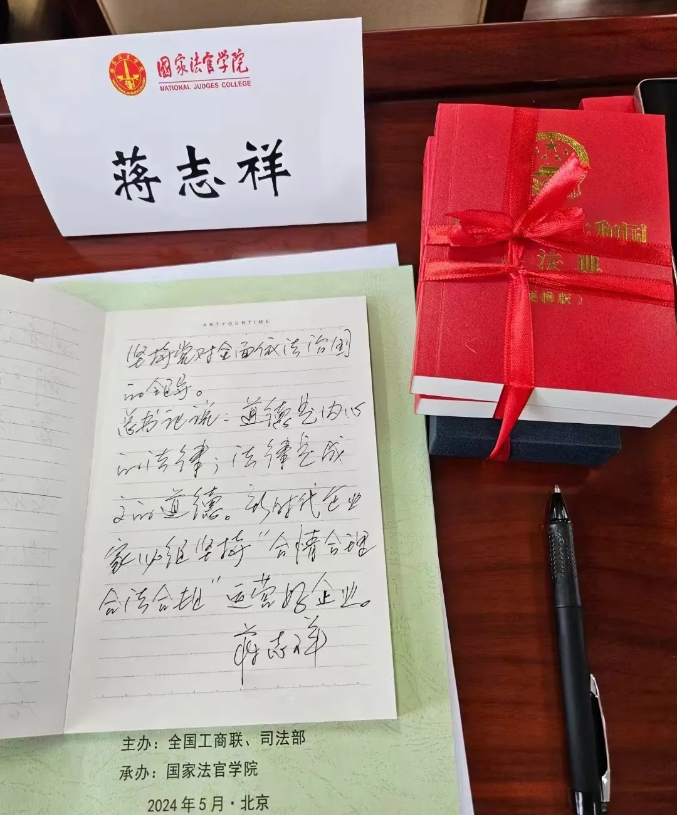 國家法官学院
NATIONAL JUDGES COLLEGE
蒋志祥
法典
ARTYOURTIME
坚持党对全面依法治国
的领导。
总书记说：道德是内心
的法律；法律是成
文的道德。新时代企业
家必须坚持“合情合理
合法合规”运营好企业。
蒋志祥
主办：全国工商联、司法部
承办：国家法官学院
2024年5月·北京